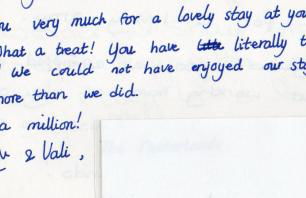 u very much for a lovely stay at you
What a treat! You have literally t
we could not have enjoyed our sta
more than we did.
a million!
& Vali,